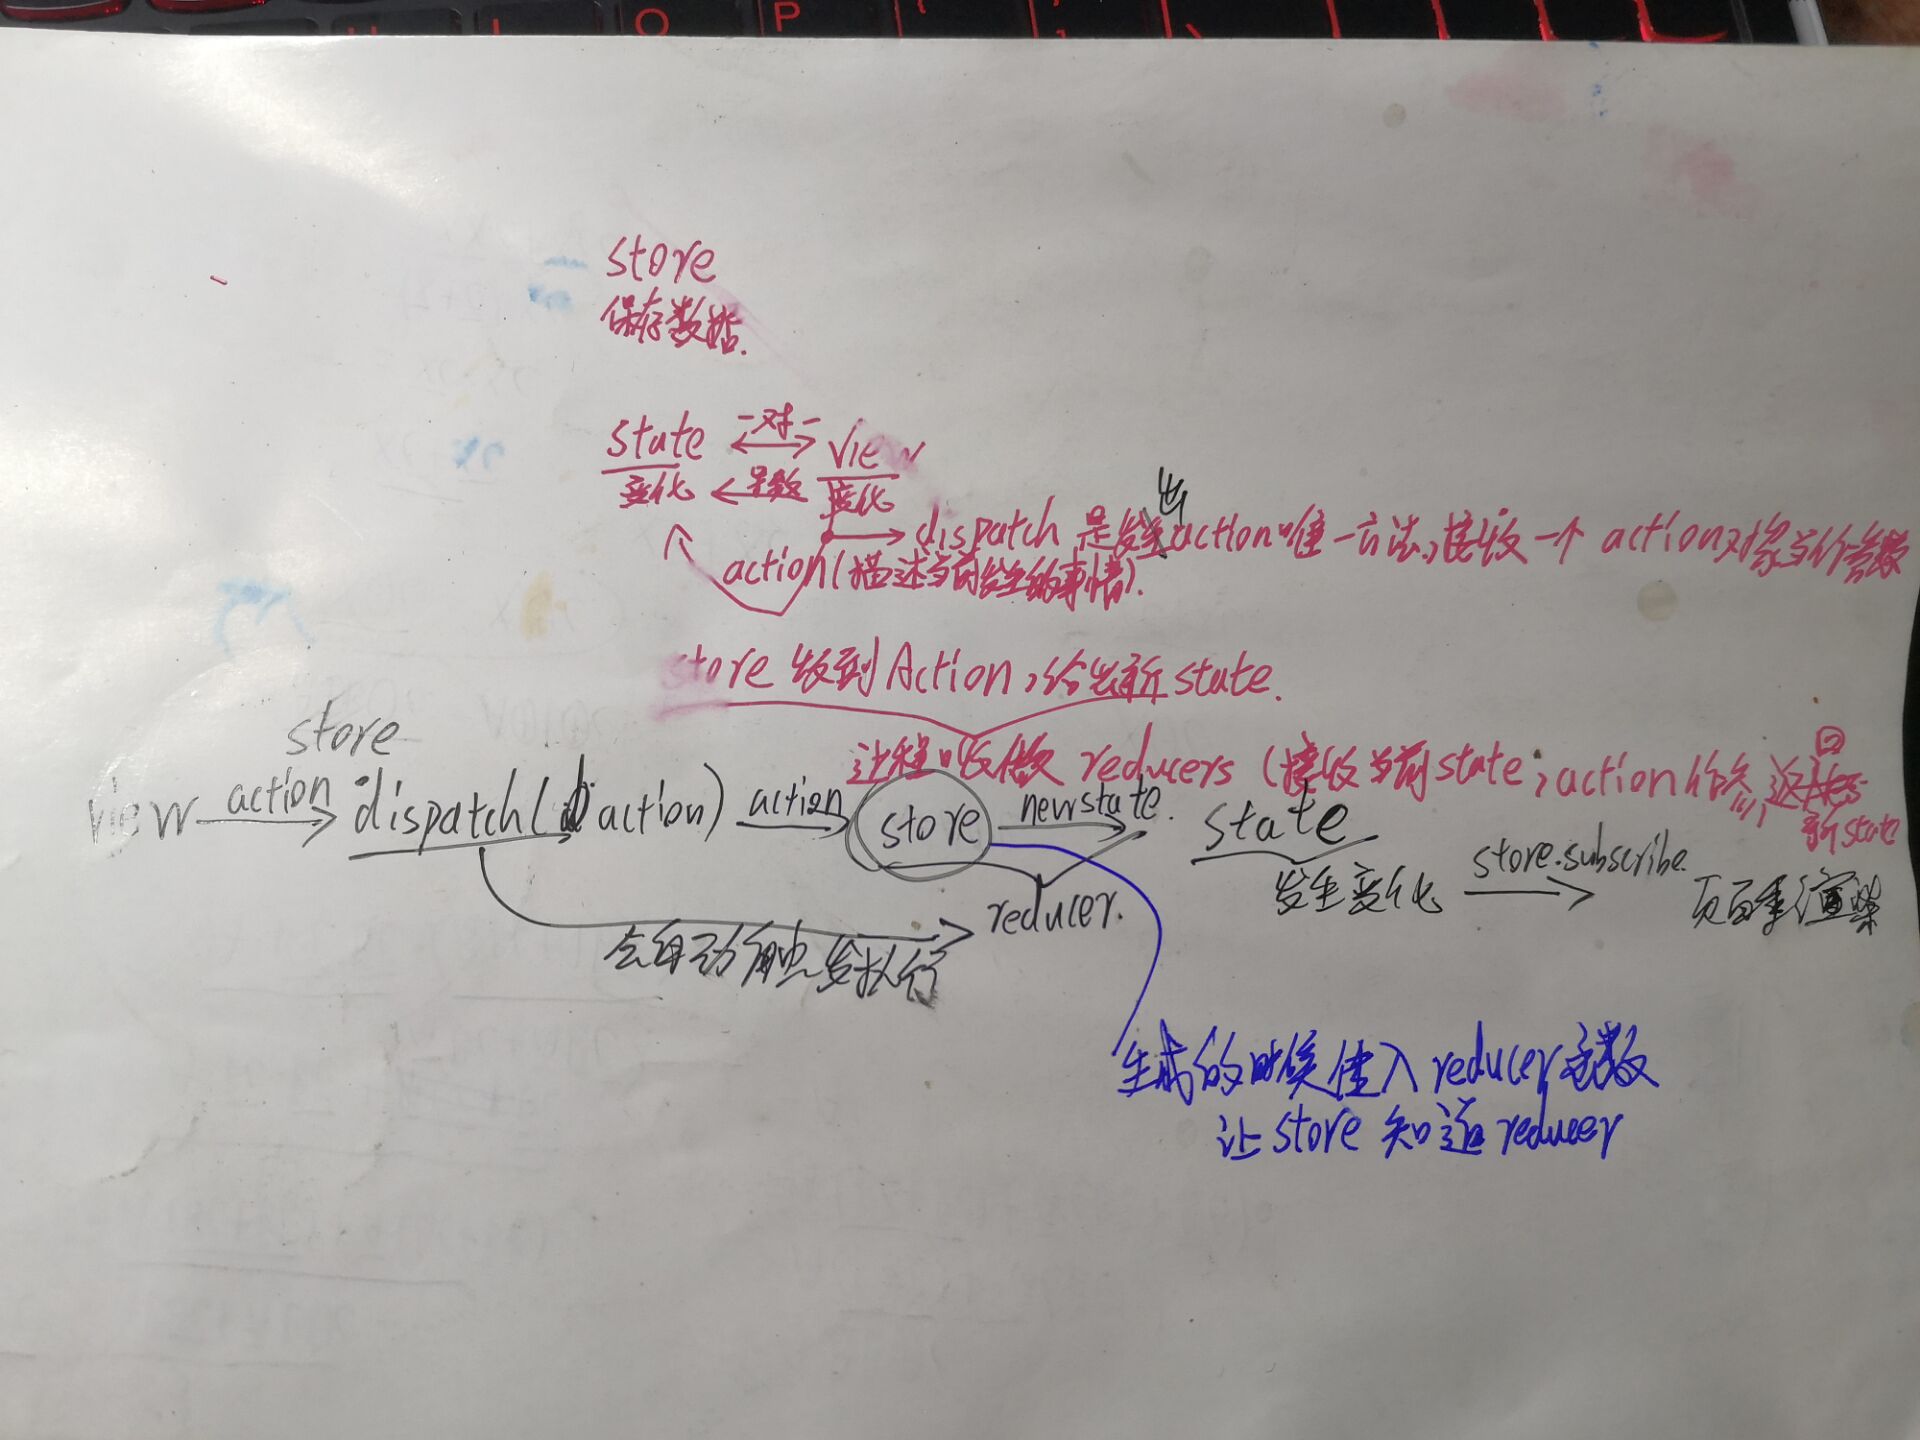 O P
store
保存数据.
state 一对一 view
变化 导致 变化
出
dispatch 是发action唯一方法,接收一个action对象当作参数
action(描述当前发生的事情).
store 收到Action,给出新state.
过程叫做 reducers (接收当前state,action作参,返回
新state
store
view action .dispatch(action) action store newstate. state store.subscribe.
发生变化 页面重渲染
reducer.
会自动触发执行
生成的时候传入reducer函数
让store知道reducer